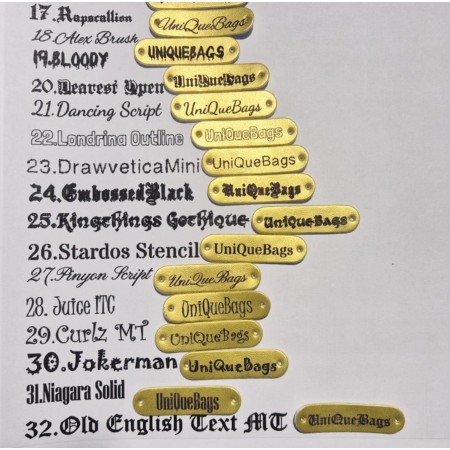 17.Rapscallion UniQueBags
18.Alex Brush
19.BLOODY UNIQUEBAGS
20.Dearest Open UniQueBags
21.Dancing Script UniQueBags
22.Londrina Outline UniQueBags
23.DrawveticaMini UniQueBags
24.EmbossedBlack UniQueBags
25.Kingthings Gothique UniQueBags
26.Stardos Stencil UniQueBags
27.Pinyon Script UniQueBags
28. Juice ITC UniQueBags
29.Curlz MT UniQueBags
30.Jokerman UniQueBags
31.Niagara Solid UniQueBags
32.Old English Text MT UniQueBags